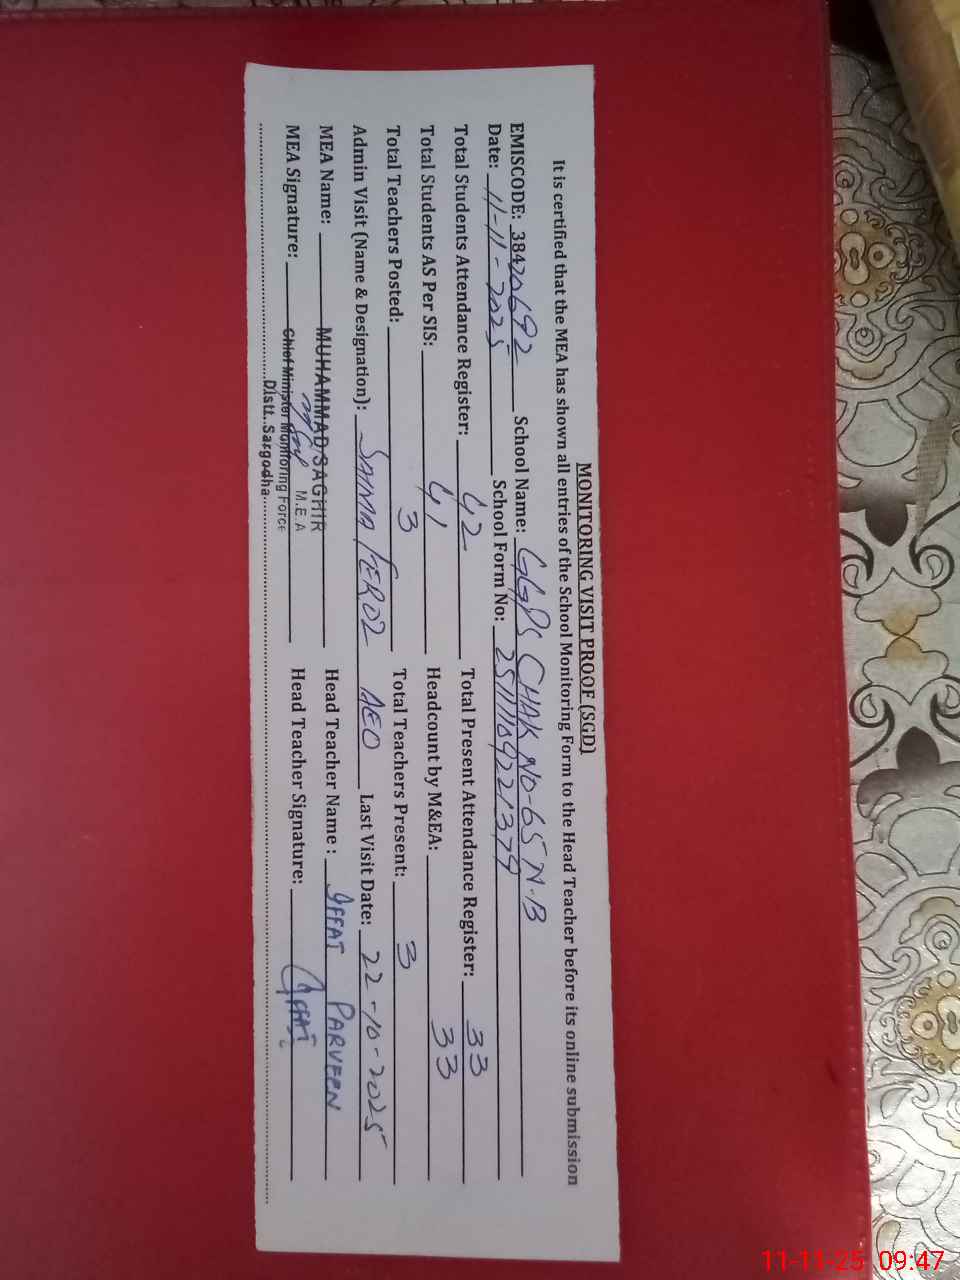 MONITORING VISIT PROOF (SGD)
It is certified that the MEA has shown all entries of the School Monitoring Form to the Head Teacher before its online submission
EMISCODE: 38420692 School Name: GGPS CHAK NO-65 N.B
Date: 11-11-2025 School Form No:
Total Students Attendance Register: 42 Total Present Attendance Register: 33
Total Students AS Per SIS: 41 Headcount by M&EA: 33
Total Teachers Posted: 3 Total Teachers Present: 3
Admin Visit (Name & Designation): SAIMA FEROZ AEO Last Visit Date: 22-10-2025
MEA Name: MUHAMMAD SAGHIR Head Teacher Name : IFFAT PARVEEN
M.E.A
MEA Signature: Chief Minister Monitoring Force Head Teacher Signature: Iffat
Distt. Sargodha
11-11-25 09:47